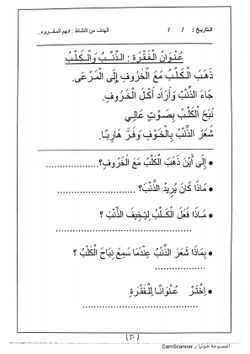 التاريخ : / / الهدف من النشاط : فهم المقروء.
عُنْوَانُ الْفَقْرَةِ : الذِّئْبُ وَالْكَلْبُ
ذَهَبَ الْكَلْبُ مَعَ الْخَرُوفِ إِلَى الْمَرْعَى.
جَاءَ الذِّئْبُ وَأَرَادَ أَكْلَ الْخَرُوفِ.
نَبَحَ الْكَلْبُ بِصَوْتٍ عَالِي
شَعَرَ الذِّئْبُ بِالْخَوْفِ وَفَرَّ هَارِبًا.
• إِلَى أَيْنَ ذَهَبَ الْكَلْبُ مَعَ الْخَرُوفِ؟............
• مَاذَا كَانَ يُرِيدُ الذِّئْبُ؟............
• مَاذَا فَعَلَ الْكَلْبُ لِيُخِيفَ الذِّئْبَ ؟
............
• بِمَاذَا شَعَرَ الذِّئْبُ عِنْدَمَا سَمِعَ نِبَاحَ الْكَلْبُ ؟
............
• اِخْتَرْ عُنْوَانًا لِلْفَقْرَةِ
............
(٢٠)
الممسوحة ضوئيا بـ CamScanner